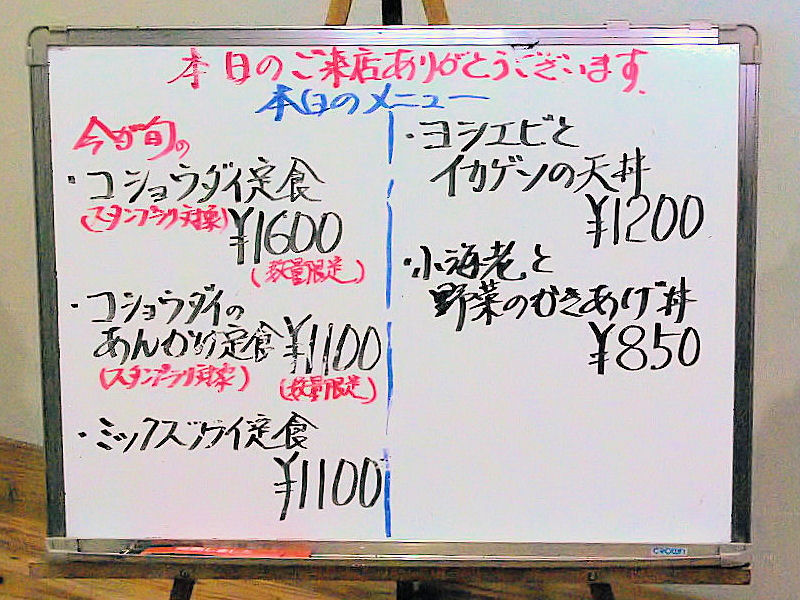 本日のご来店ありがとうございます。
本日のメニュー
今が旬の
・コショウダイ定食
(スタンプラリー対象)
¥1600
(数量限定)
・コショウダイの
あんかけ定食 ¥1100
(スタンプラリー対象) (数量限定)
・ミックスフライ定食
¥1100
・ヨシエビと
イカゲソの天丼
¥1200
・小海老と
野菜のかきあげ丼
¥850
CROWN